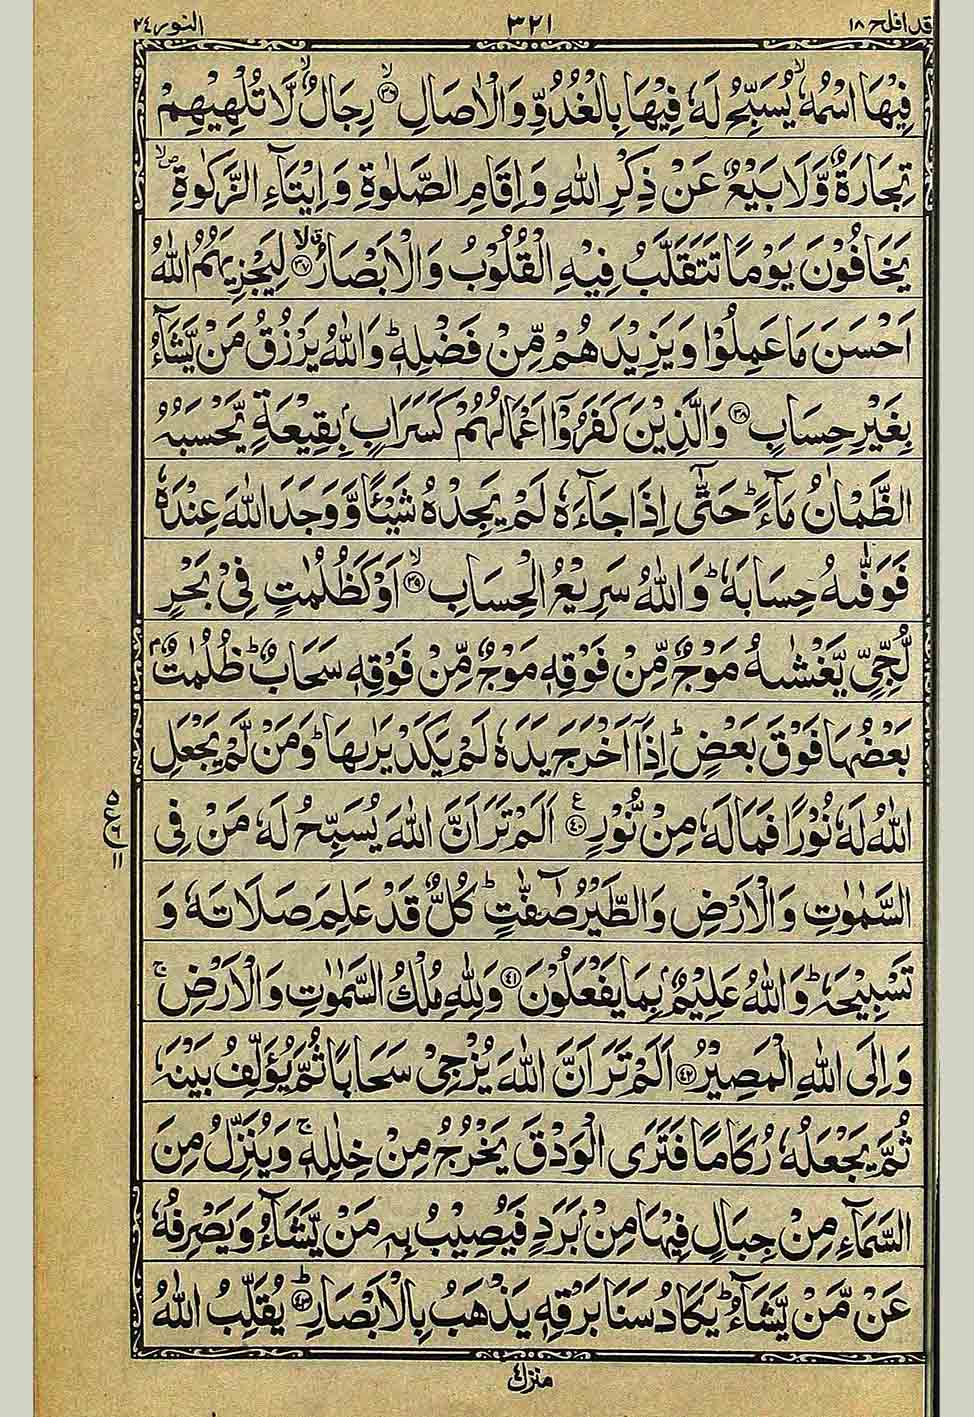 قد افلح ١٨
٣٢١
النور ٢٤
فِيْهَا اسْمُهٗ ۙ يُسَبِّحُ لَهٗ فِيْهَا بِالْغُدُوِّ وَالْاٰصَالِ ﴿٣٦﴾ ۙ رِجَالٌ ۙ لَّا تُلْهِيْهِمْ
تِجَارَةٌ وَّلَا بَيْعٌ عَنْ ذِكْرِ اللّٰهِ وَاِقَامِ الصَّلٰوةِ وَاِيْتَآءِ الزَّكٰوةِ ۪ۙ
يَخَافُوْنَ يَوْمًا تَتَقَلَّبُ فِيْهِ الْقُلُوْبُ وَالْاَبْصَارُ ﴿٣٧﴾ ق لا لِيَجْزِيَهُمُ اللّٰهُ
اَحْسَنَ مَا عَمِلُوْا وَيَزِيْدَهُمْ مِّنْ فَضْلِهٖ ؕ وَاللّٰهُ يَرْزُقُ مَنْ يَّشَآءُ
بِغَيْرِ حِسَابٍ ﴿٣٨﴾ وَالَّذِيْنَ كَفَرُوْۤا اَعْمَالُهُمْ كَسَرَابٍۭ بِقِيْعَةٍ يَّحْسَبُهُ
الظَّمْاٰنُ مَآءً ؕ حَتّٰۤى اِذَا جَآءَهٗ لَمْ يَجِدْهُ شَيْـًٔا وَّوَجَدَ اللّٰهَ عِنْدَهٗ
فَوَفّٰىهُ حِسَابَهٗ ؕ وَاللّٰهُ سَرِيْعُ الْحِسَابِ ﴿٣٩﴾ ۙ اَوْ كَظُلُمٰتٍ فِيْ بَحْرٍ
لُّجِّيٍّ يَّغْشٰىهُ مَوْجٌ مِّنْ فَوْقِهٖ مَوْجٌ مِّنْ فَوْقِهٖ سَحَابٌ ؕ ظُلُمٰتٌۢ
بَعْضُهَا فَوْقَ بَعْضٍ ؕ اِذَاۤ اَخْرَجَ يَدَهٗ لَمْ يَكَدْ يَرٰىهَا ؕ وَمَنْ لَّمْ يَجْعَلِ
اللّٰهُ لَهٗ نُوْرًا فَمَا لَهٗ مِنْ نُّوْرٍ ﴿٤٠﴾ ع اَلَمْ تَرَ اَنَّ اللّٰهَ يُسَبِّحُ لَهٗ مَنْ فِى
٥
ع ٦
١١
السَّمٰوٰتِ وَالْاَرْضِ وَالطَّيْرُ صٰٓفّٰتٍ ؕ كُلٌّ قَدْ عَلِمَ صَلَاتَهٗ وَ
تَسْبِيْحَهٗ ؕ وَاللّٰهُ عَلِيْمٌۢ بِمَا يَفْعَلُوْنَ ﴿٤١﴾ وَلِلّٰهِ مُلْكُ السَّمٰوٰتِ وَالْاَرْضِ ۚ
وَاِلَى اللّٰهِ الْمَصِيْرُ ﴿٤٢﴾ اَلَمْ تَرَ اَنَّ اللّٰهَ يُزْجِيْ سَحَابًا ثُمَّ يُؤَلِّفُ بَيْنَهٗ
ثُمَّ يَجْعَلُهٗ رُكَامًا فَتَرَى الْوَدْقَ يَخْرُجُ مِنْ خِلٰلِهٖ ۚ وَيُنَزِّلُ مِنَ
السَّمَآءِ مِنْ جِبَالٍ فِيْهَا مِنْۢ بَرَدٍ فَيُصِيْبُ بِهٖ مَنْ يَّشَآءُ وَيَصْرِفُهٗ
عَنْ مَّنْ يَّشَآءُ ؕ يَكَادُ سَنَا بَرْقِهٖ يَذْهَبُ بِالْاَبْصَارِ ﴿٤٣﴾ ؕ يُقَلِّبُ اللّٰهُ
منزل ٤